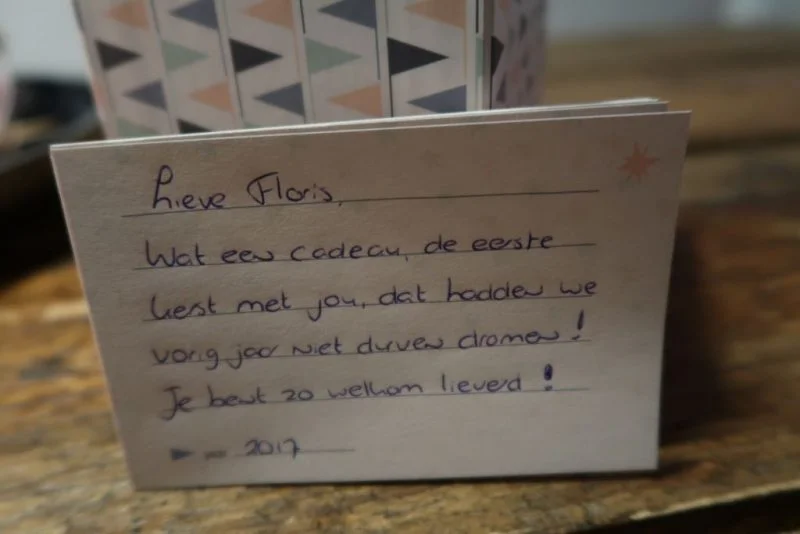 Lieve Floris,
Wat een cadeau, de eerste
kerst met jou, dat hadden we
vorig jaar niet durven dromen!
Je bent zo welkom lieverd!
2017